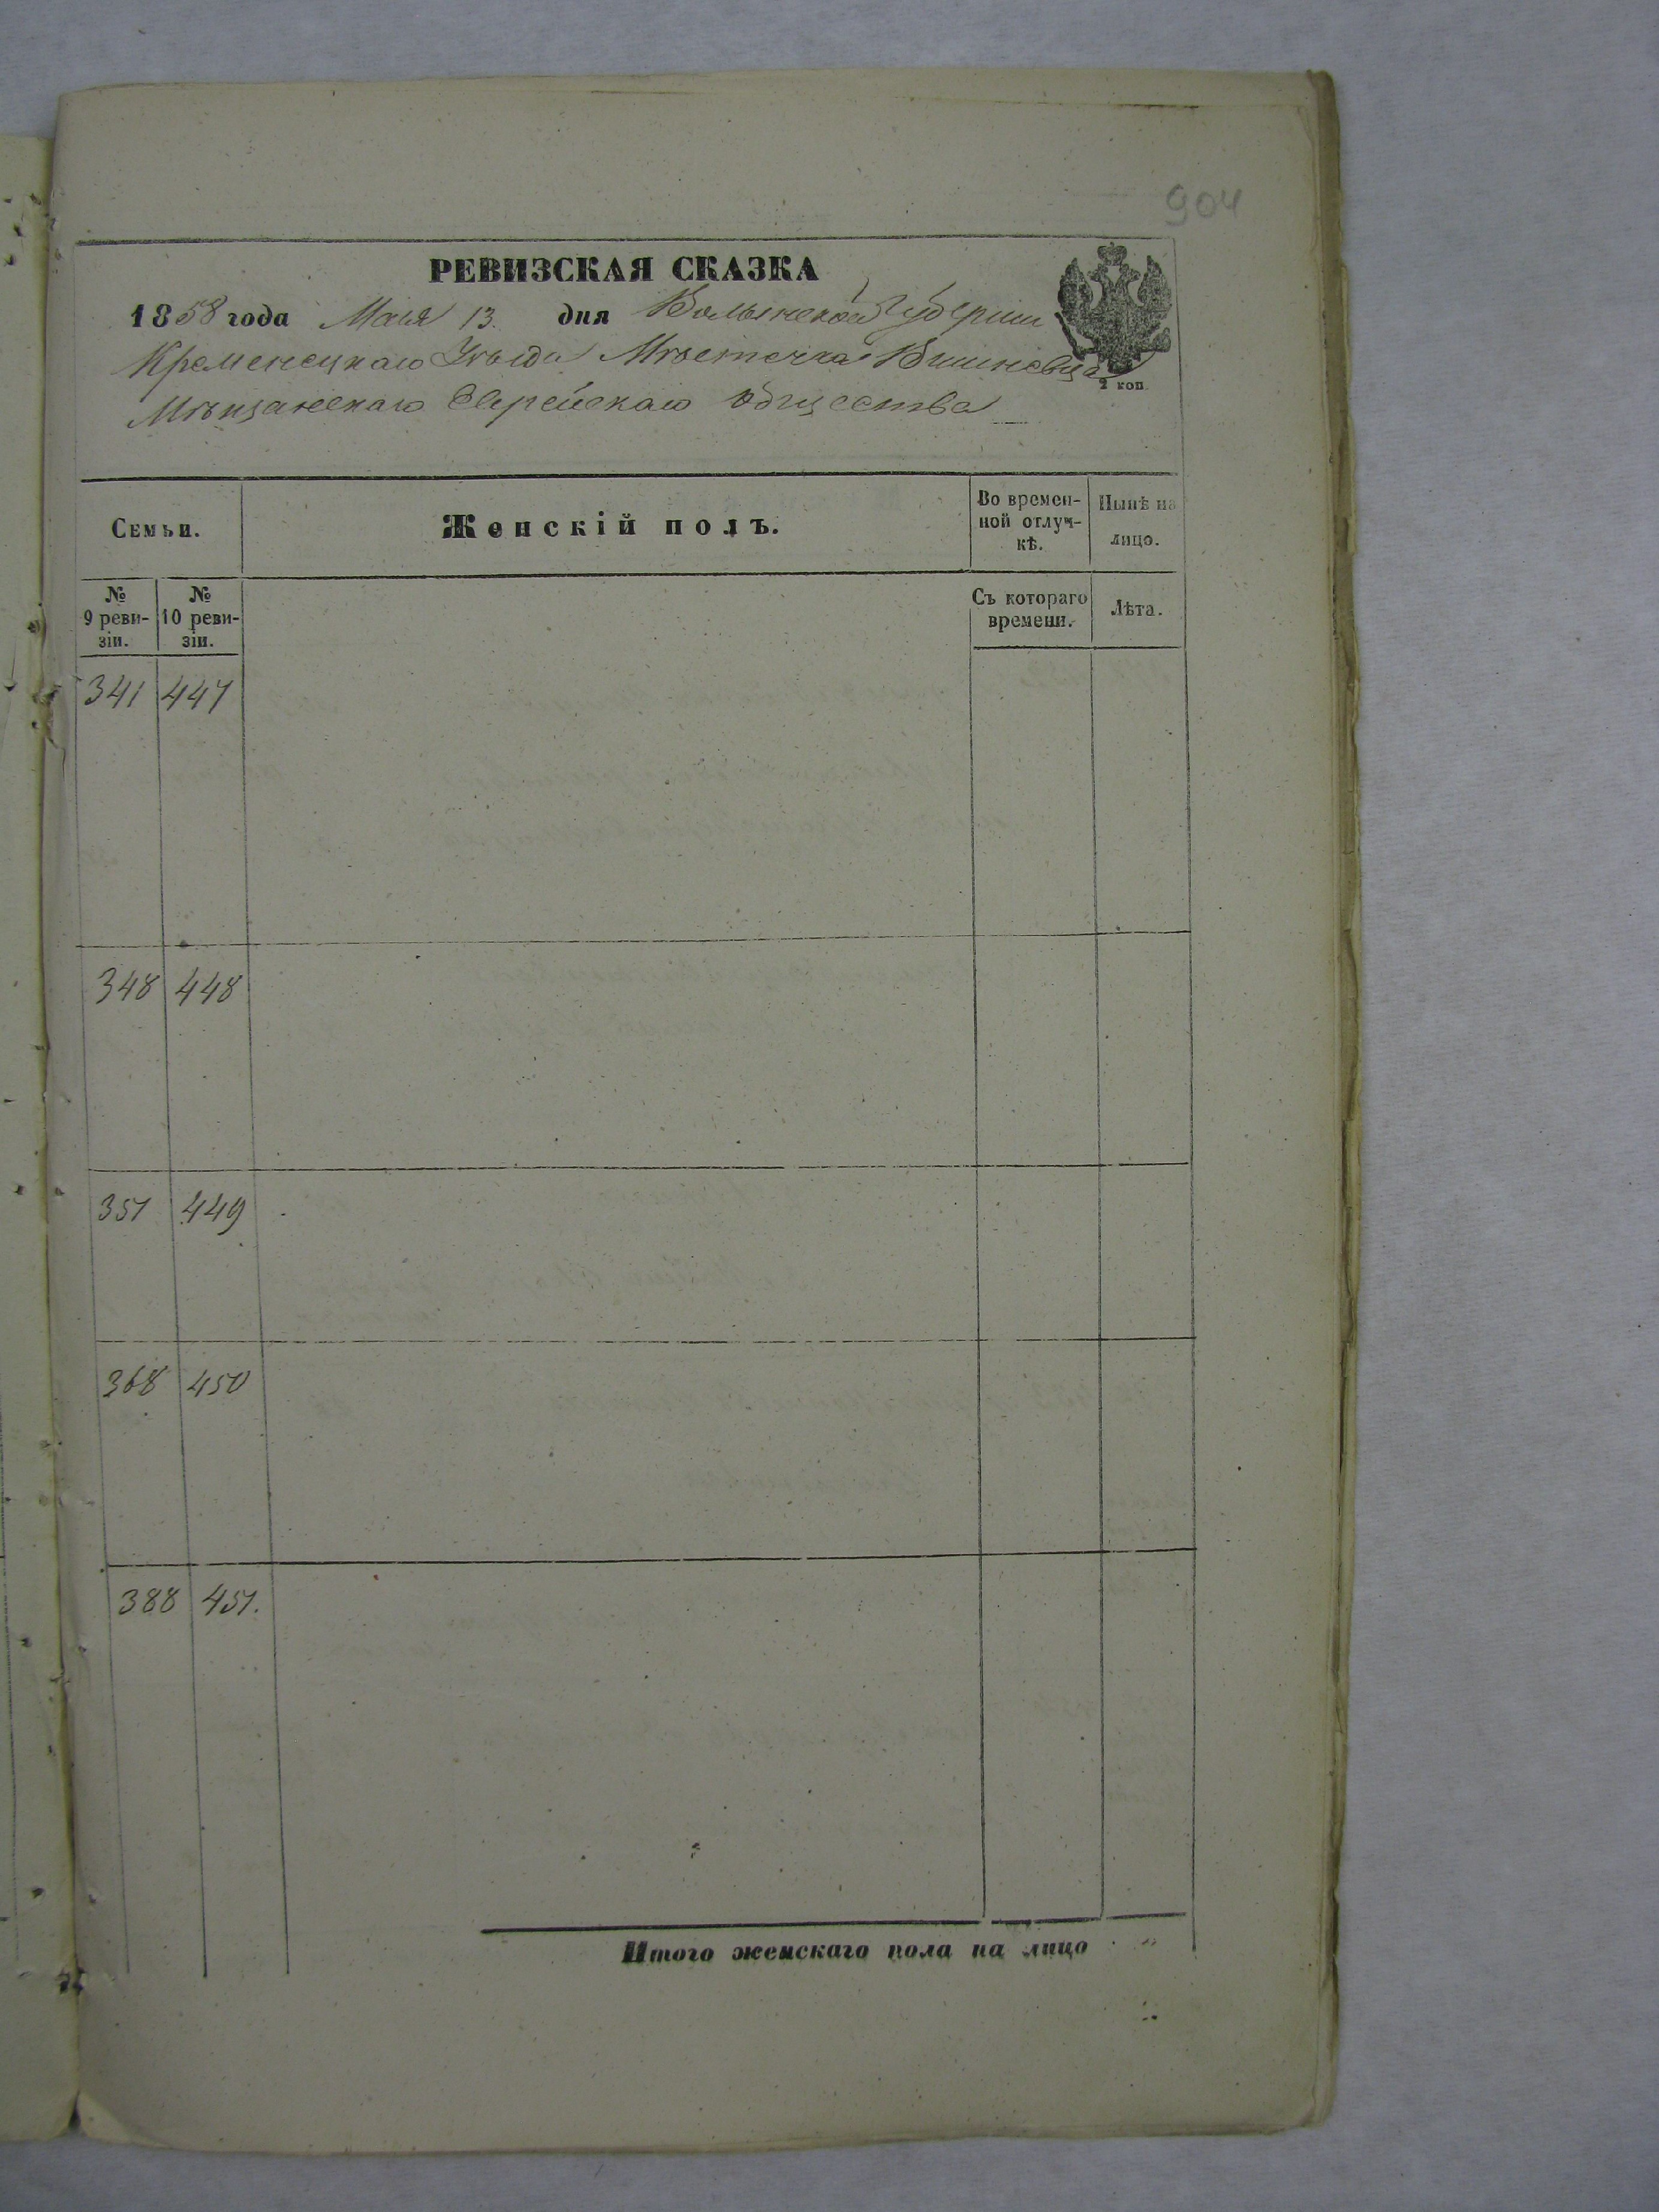 904
РЕВИЗСКАЯ СКАЗКА
1858 года Маія 13. дня Волынской Губерніи
Кременецкаго Уѣзда Мѣстечка Вишневца
2 коп.
Мѣщанскаго Еврейскаго Общества
Семьи. Женскій полъ. Во времен-ной отлуч-кѣ. Нынѣ на лицо.
№ 9 реви-зіи. № 10 реви-зіи. Съ котораго времени. Лѣта.
341 447
348 448
351 449
368 450
388 451.
Итого женскаго пола на лицо "